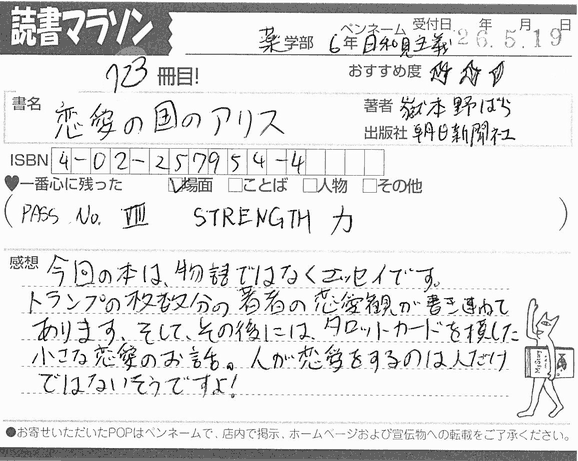 読書マラソン
薬学部 6年 ペンネーム 日和見主義 受付日 26年5月19日
723冊目! おすすめ度
書名 恋愛の国のアリス
著者 嶽本野ばら
出版社 朝日新聞社
ISBN 4-02-257954-4
♥一番心に残った ☑場面 □ことば □人物 □その他
(PASS No. Ⅷ STRENGTH 力)
感想 今回の本は、物語ではなくエッセイです。
トランプの枚数分の著者の恋愛観が書き連ねて
あります。そして、その後には、タロットカードを模した
小さな恋愛のお話。人が恋愛をするのは人だけ
ではないそうですよ!
●お寄せいただいたPOPはペンネームで、店内で掲示、ホームページおよび宣伝物への転載をご了承ください。